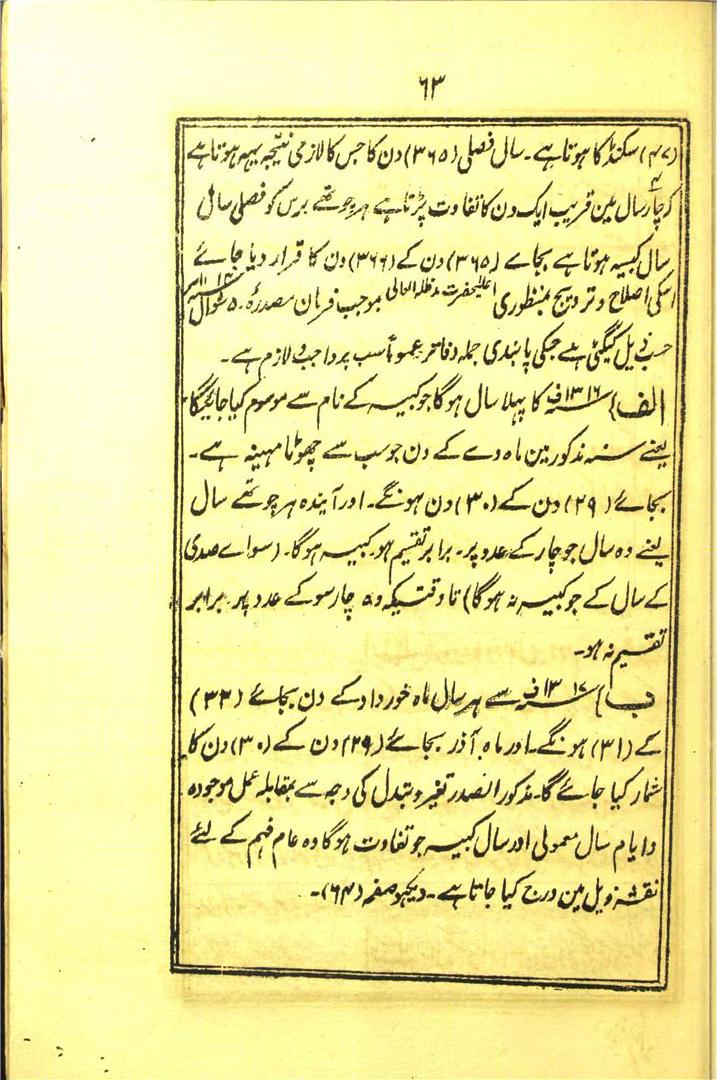 ۶۳
(۴۷) سکنڈ کا ہوتا ہے۔ سال فصلی (۳۶۵) دن کا جس کا لازمی نتیجہ یہہ ہوتا ہے
کہ چار سال مین قریب ایک دن کا تفاوت پڑتا ہے ہر چوتھے برس کو فصلی سال
سال کبیسہ ہوتا ہے بجاے (۳۶۵) دن کے (۳۶۶) دن کا قرار دیا جائے
اسکی اصلاح و ترویج بمنظوری اعلیٰحضرت مدظلہ العالی بموجب فرمان مصدرہ ۵۔ شوال
حسب ذیل کیگئی ہے جسکی پابندی جملہ دفاتر عموماً سب پر واجب و لازم ہے۔
الف) ۱۳۱۶ ف کا پہلا سال ہوگا جو کبیسہ کے نام سے موسوم کیا جائیگا
یعنے سنہ مذکور مین ماہ دے کے دن جو سب سے چھوٹا مہینہ ہے۔
بجائے (۲۹) دن کے (۳۰) دن ہونگے۔ اور آیندہ ہر چوتھے سال
یعنے وہ سال جو چار کے عدد پر۔ برابر تقسیم ہو کبیسہ ہوگا۔ (سواے صدی
کے سال کے جو کبیسہ نہ ہوگا) تا وقتیکہ وہ چار سو کے عدد پر برابر
تقسیم نہ ہو۔
ب) ۱۳۱۷ ف سے ہر سال ماہ خورداد کے دن بجائے (۳۲)
کے (۳۱) ہونگے۔ اور ماہ آذر بجائے (۲۹) دن کے (۳۰) دن کا
شمار کیا جائے گا۔ مذکور الصدر تغیر و تبدل کی وجہ سے بمقابلہ عمل موجودہ
و ایام سال معمولی اور سال کبیسہ جو تفاوت ہوگا وہ عام فہم کے لئے
نقشہ ذیل مین درج کیا جاتا ہے۔ دیکہو صفحہ (۶۴)۔